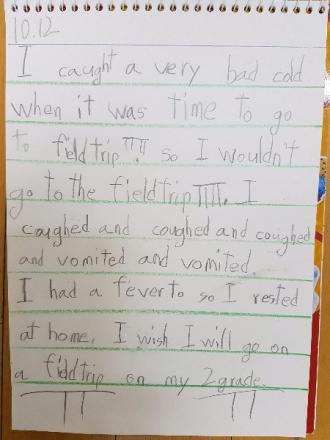 10.12
I caught a very bad cold
when it was time to go
to fieldtrip ㅠㅠ. so I wouldn't
go to the fieldtrip ㅠㅠ. I
coughed and coughed and coughed
and vomited and vomited.
I had a fever to so I rested
at home. I wish I will go on
a fieldtrip on my 2 grade.
ㅠ ㅠ